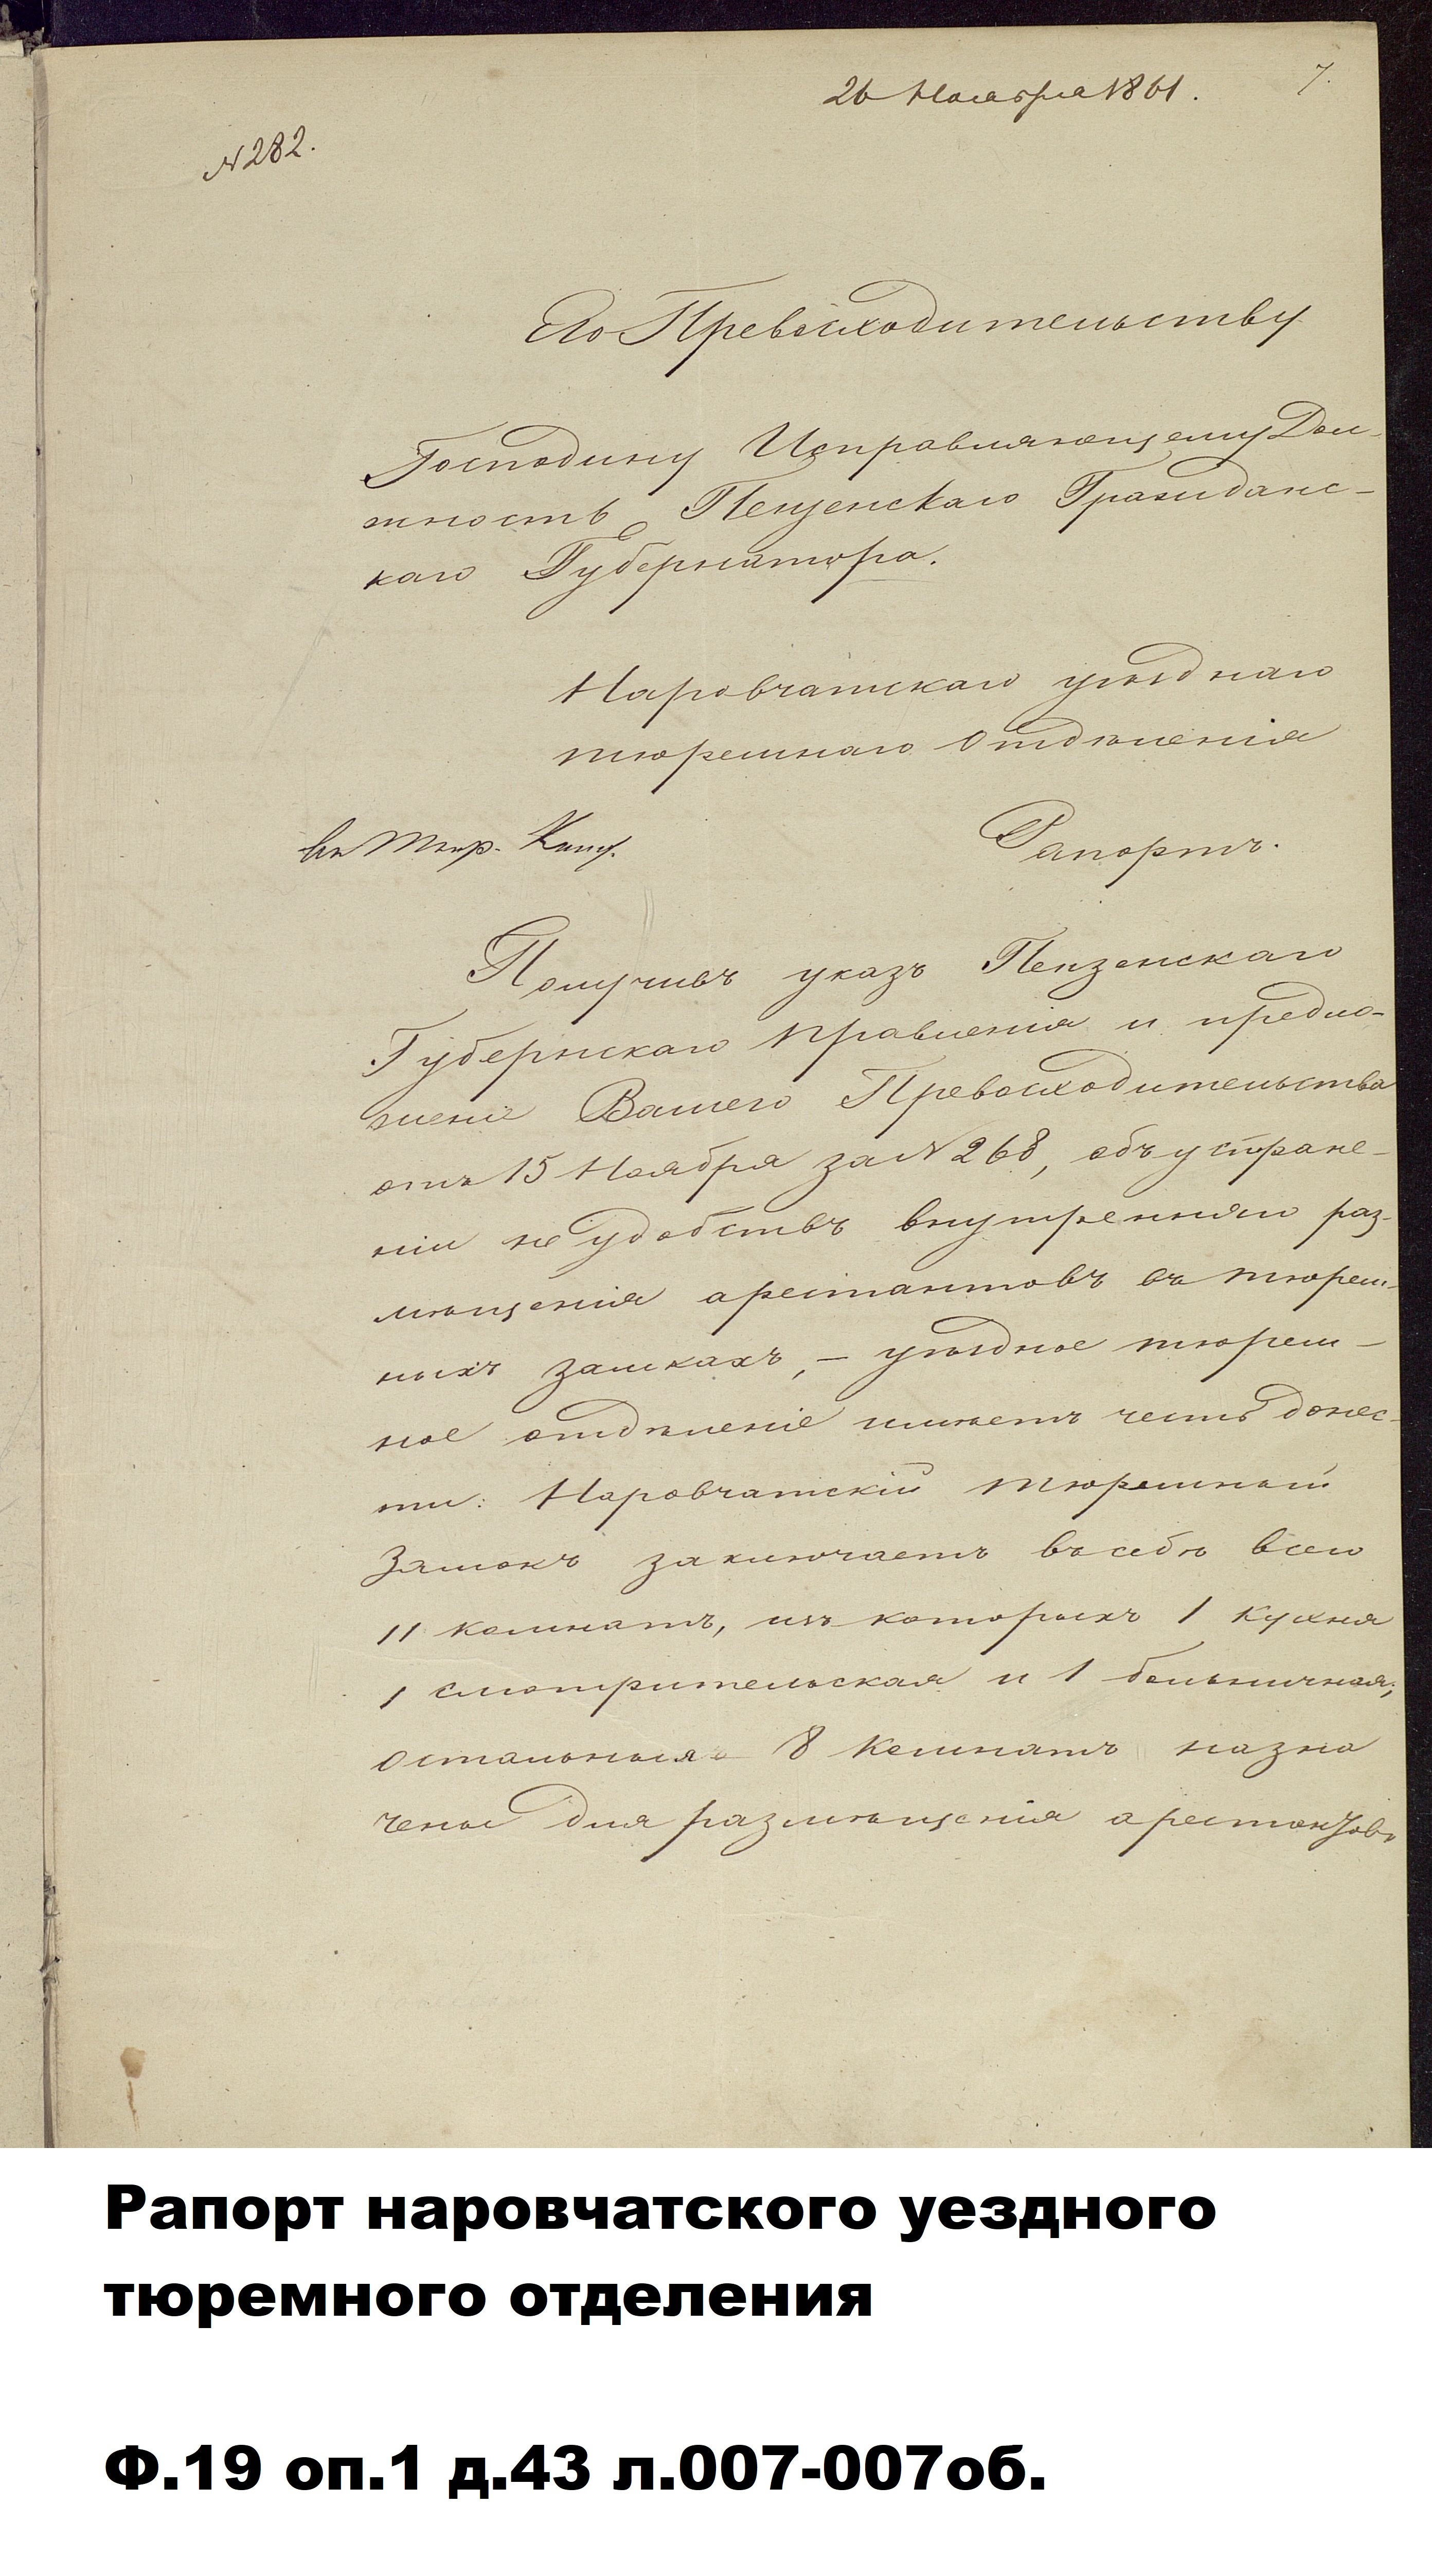 26 Ноября 1861.
7.
№ 282.
Его Превосходительству
Господину Исправляющему Дол-
жность Пензенскаго Гражданс-
каго Губернатора.
Наровчатскаго уѣзднаго
тюремнаго Отдѣленія
Въ Тюр. Ком.
Рапортъ.
Получивъ указъ Пензенскаго
Губернскаго Правленія и предло-
женіе Вашего Превосходительства
отъ 15 Ноября за № 268, объ устране-
ніи не удобствъ внутренняго раз-
мѣщенія арестантовъ въ тюрем-
ныхъ замкахъ, – уѣздное тюрем-
ное отдѣленіе имѣетъ честь донес-
ти: Наровчатскій тюремный
Замокъ заключаетъ въ себѣ всего
11 комнатъ, изъ которыхъ 1 кухня
1 смотрительская и 1 больничная;
остальныя 8 комнатъ назна
чены для размѣщенія арестантовъ
Рапорт наровчатского уездного
тюремного отделения
Ф.19 оп.1 д.43 л.007-007об.